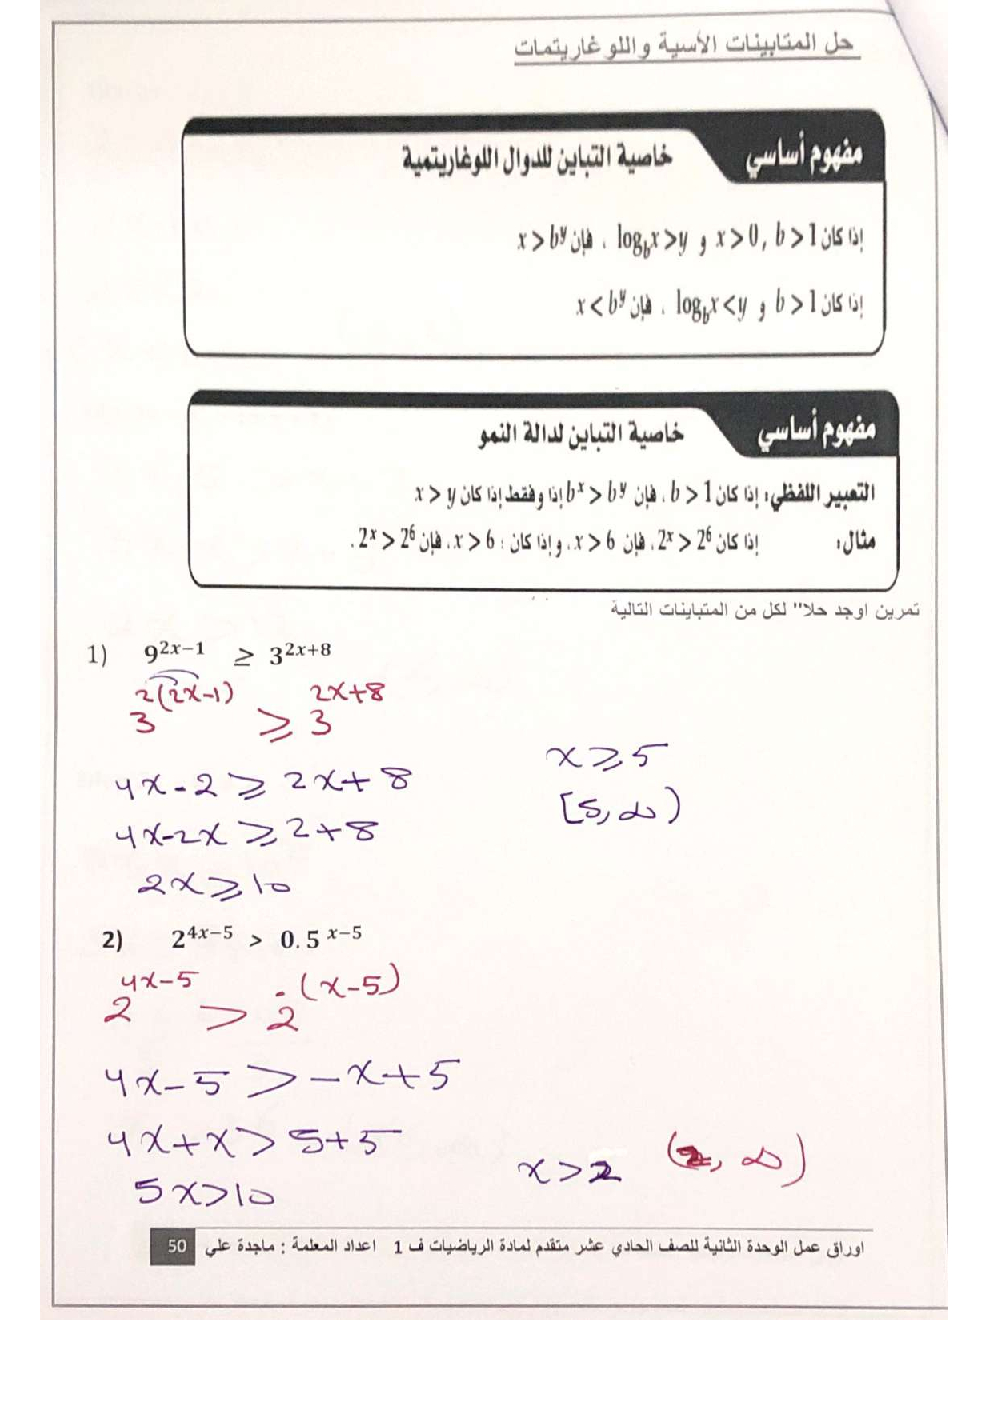 حل المتابينات الأسية واللوغاريتمات
مفهوم أساسي خاصية التباين للدوال اللوغاريتمية
إذا كان x > 0 , b > 1 و log_b x > y ، فإن x > b^y
إذا كان b > 1 و log_b x < y ، فإن x < b^y
مفهوم أساسي خاصية التباين لدالة النمو
التعبير اللفظي: إذا كان b > 1 ، فإن b^x > b^y إذا وفقط إذا كان x > y
مثال: إذا كان 2^x > 2^6، فإن x > 6، وإذا كان : x > 6، فإن 2^x > 2^6.
تمرين اوجد حلا" لكل من المتباينات التالية
1) 9^{2x−1} ≥ 3^{2x+8}
3^{2(2x-1)} ≥ 3^{2x+8}
4x-2 ≥ 2x+8
4x-2x ≥ 2+8
2x ≥ 10
x ≥ 5
[5, ∞)
2) 2^{4x−5} > 0.5^{x−5}
2^{4x-5} > 2^{-(x-5)}
4x-5 > -x+5
4x+x > 5+5
5x > 10
x > 2 (2, ∞)
اوراق عمل الوحدة الثانية للصف الحادي عشر متقدم لمادة الرياضيات ف 1 اعداد المعلمة : ماجدة علي 50